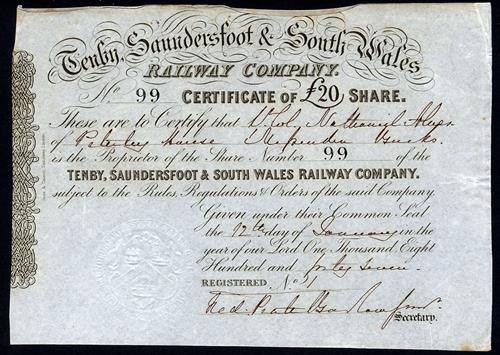 Tenby, Saundersfoot & South Wales
RAILWAY COMPANY.
No. 99 CERTIFICATE OF £20 SHARE.
These are to Certify that Nathaniel
of House Bucks
is the Proprietor of the Share Number 99 of the
TENBY, SAUNDERSFOOT & SOUTH WALES RAILWAY COMPANY.
subject to the Rules, Regulations & Orders of the said Company.
Given under their Common Seal
the 12th day of January in the
year of our Lord One Thousand Eight
Hundred and forty seven.
REGISTERED No.
Secretary.